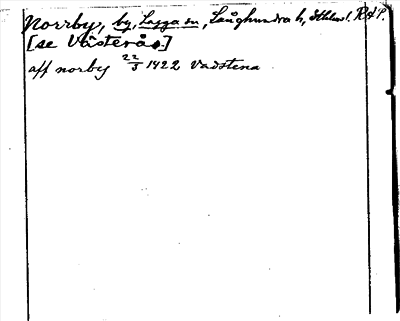 Norrby, by, Lagga sn, Långhundra h, Sthlms l. RAP.
[se Västerås.]
aff norby 22/3 1422 Vadstena